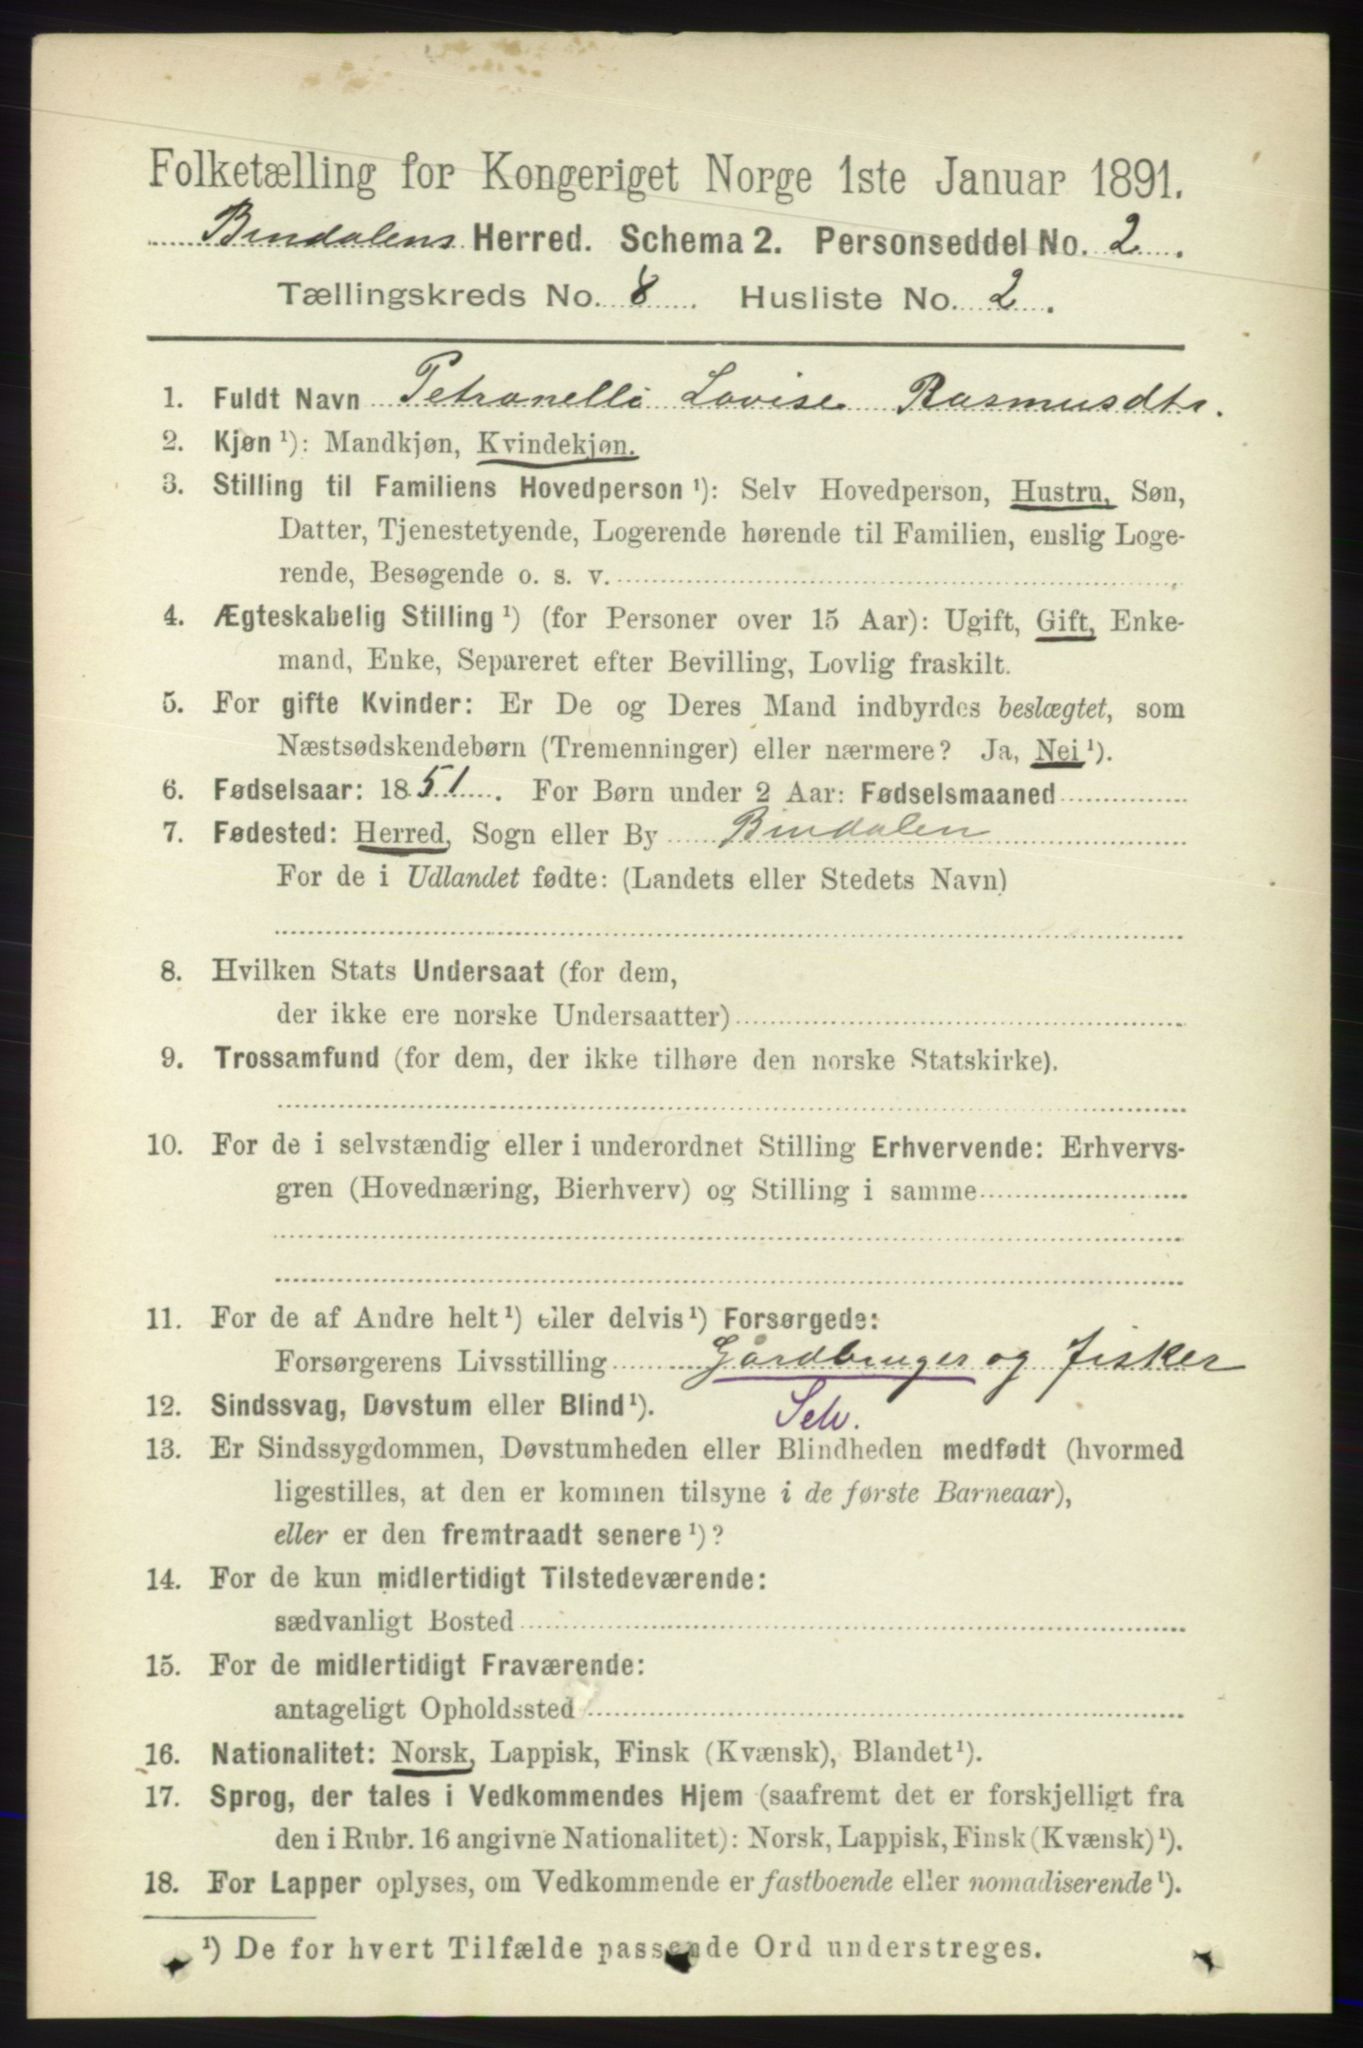 Folketælling for Kongeriget Norge 1ste Januar 1891.
Bindalens Herred. Schema 2. Personseddel No. 2.
Tællingskreds No. 8 Husliste No. 2.
1. Fuldt Navn Petranelli Lovise Rasmusdtr.
2. Kjøn ¹): Mandkjøn, Kvindekjøn.
3. Stilling til Familiens Hovedperson ¹): Selv Hovedperson, Hustru, Søn,
Datter, Tjenestetyende, Logerende hørende til Familien, enslig Loge-
rende, Besøgende o. s. v.
4. Ægteskabelig Stilling ¹) (for Personer over 15 Aar): Ugift, Gift, Enke-
mand, Enke, Separeret efter Bevilling, Lovlig fraskilt.
5. For gifte Kvinder: Er De og Deres Mand indbyrdes beslægtet, som
Næstsødskendebørn (Tremenninger) eller nærmere? Ja, Nei ¹).
6. Fødselsaar: 1851. For Børn under 2 Aar: Fødselsmaaned
7. Fødested: Herred, Sogn eller By Bindalen
For de i Udlandet fødte: (Landets eller Stedets Navn)
8. Hvilken Stats Undersaat (for dem,
der ikke ere norske Undersaatter)
9. Trossamfund (for dem, der ikke tilhøre den norske Statskirke).
10. For de i selvstændig eller i underordnet Stilling Erhvervende: Erhvervs-
gren (Hovednæring, Bierhverv) og Stilling i samme
11. For de af Andre helt ¹) eller delvis ¹) Forsørgede:
Forsørgerens Livsstilling Gårdbruger og fisker
12. Sindssvag, Døvstum eller Blind ¹). Selv.
13. Er Sindssygdommen, Døvstumheden eller Blindheden medfødt (hvormed
ligestilles, at den er kommen tilsyne i de første Barneaar),
eller er den fremtraadt senere ¹)?
14. For de kun midlertidigt Tilstedeværende:
sædvanligt Bosted
15. For de midlertidigt Fraværende:
antageligt Opholdssted
16. Nationalitet: Norsk, Lappisk, Finsk (Kvænsk), Blandet ¹).
17. Sprog, der tales i Vedkommendes Hjem (saafremt det er forskjelligt fra
den i Rubr. 16 angivne Nationalitet): Norsk, Lappisk, Finsk (Kvænsk) ¹).
18. For Lapper oplyses, om Vedkommende er fastboende eller nomadiserende ¹).
¹) De for hvert Tilfælde passende Ord understreges.